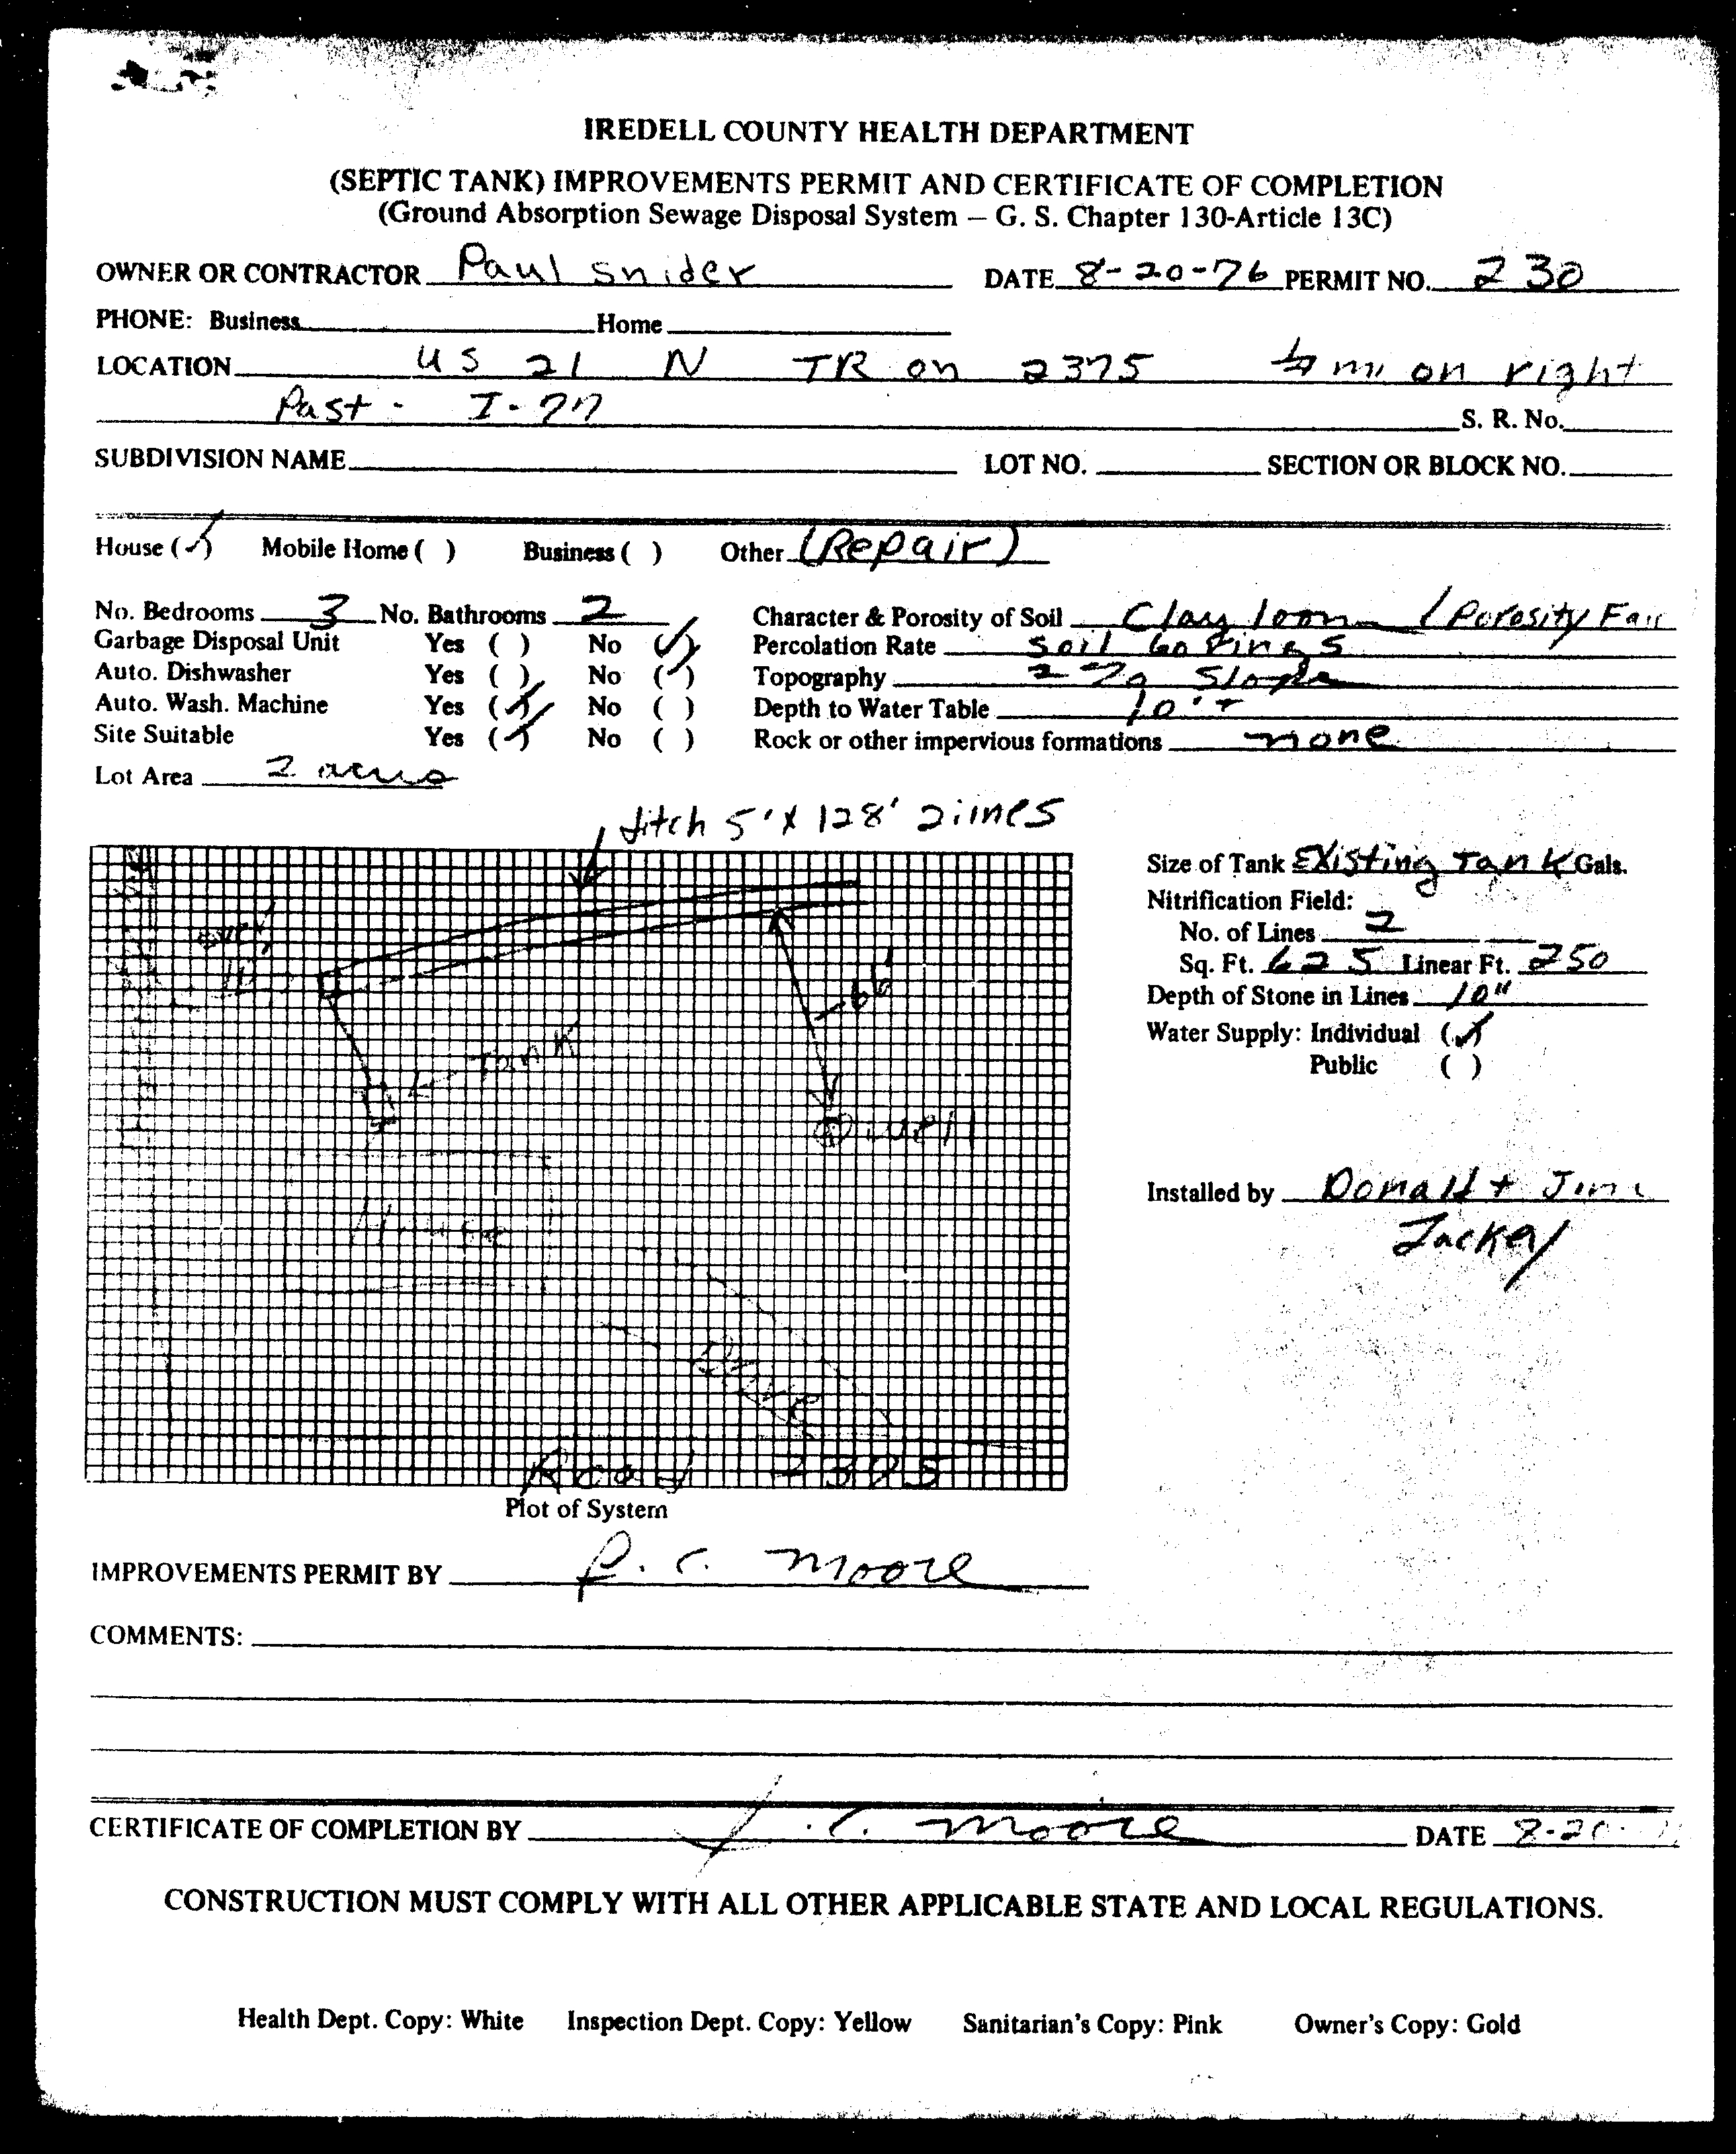 IREDELL COUNTY HEALTH DEPARTMENT
(SEPTIC TANK) IMPROVEMENTS PERMIT AND CERTIFICATE OF COMPLETION
(Ground Absorption Sewage Disposal System — G. S. Chapter 130-Article 13C)
OWNER OR CONTRACTOR Paul Snider DATE 8-20-76 PERMIT NO. 230
PHONE: Business Home
LOCATION US 21 N TR on 2375 mi on right
Past - I-77 S. R. No.
SUBDIVISION NAME LOT NO. SECTION OR BLOCK NO.
House (✓) Mobile Home ( ) Business ( ) Other (Repair)
No. Bedrooms 3 No. Bathrooms 2 Character & Porosity of Soil Clay loom / Porosity Fair
Garbage Disposal Unit Yes ( ) No (✓) Percolation Rate Soil borings
Auto. Dishwasher Yes ( ) No (✓) Topography Slope
Auto. Wash. Machine Yes (✓) No ( ) Depth to Water Table 10'+
Site Suitable Yes (✓) No ( ) Rock or other impervious formations none
Lot Area 2 acres
ditch 5' X 128' 2 lines
Size of Tank Existing Tank Gals.
Nitrification Field:
No. of Lines 2
Sq. Ft. 625 Linear Ft. 250
Depth of Stone in Lines 10"
Water Supply: Individual (✓)
Public ( )
60'
Tank
well
House
Drive
Road 2375
Installed by Donald + Jim
Lackey
Plot of System
IMPROVEMENTS PERMIT BY Moore
COMMENTS:
CERTIFICATE OF COMPLETION BY Moore DATE 8-20-
CONSTRUCTION MUST COMPLY WITH ALL OTHER APPLICABLE STATE AND LOCAL REGULATIONS.
Health Dept. Copy: White Inspection Dept. Copy: Yellow Sanitarian's Copy: Pink Owner's Copy: Gold